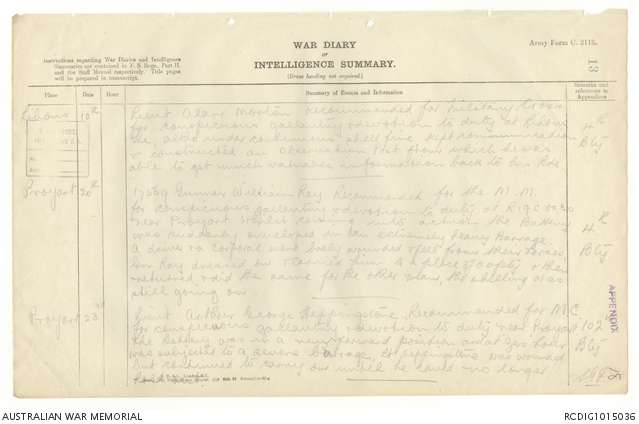 WAR DIARY
OF
INTELLIGENCE SUMMARY.
(Erase heading not required.)
Army Form C. 2118.
Instructions regarding War Diaries and Intelligence
Summaries are contained in F. S. Regs., Part II.
and the Staff Manual respectively. Title pages
will be prepared in manuscript.
Place Date Hour Summary of Events and Information Remarks and references to Appendices
Lihons 10th Lieut Alan recommended for Military Cross
for conspicuous gallantry & devotion to duty at Lihons
He, altho under continuous shell fire kept communication
& constructed an Observation Post from which he was
able to get much valuable information back to his Bde
4th Bty
Proyart 20th Gunner William Ray Recommended for the M.M.
for conspicuous gallantry & devotion to duty at
near Proyart Whilst coming into action the Battery
was suddenly enclosed in an extremely heavy Barrage
A driver & a corporal were badly wounded & fell from their horses
Gnr Ray dressed & carried him to a place of safety & then
returned & did the same for the other man, the shelling was
still going on.
4th Bty
Proyart 23rd Lieut Arthur George Recommended for M.C.
for conspicuous gallantry & devotion to duty near Proyart
The Battery was in a very forward position and at zero hour
was subjected to a severe barrage, Lt was wounded
but continued to carry on until he could no longer
102 Bty
APPENDIX
AUSTRALIAN WAR MEMORIAL
RCDIG1015036